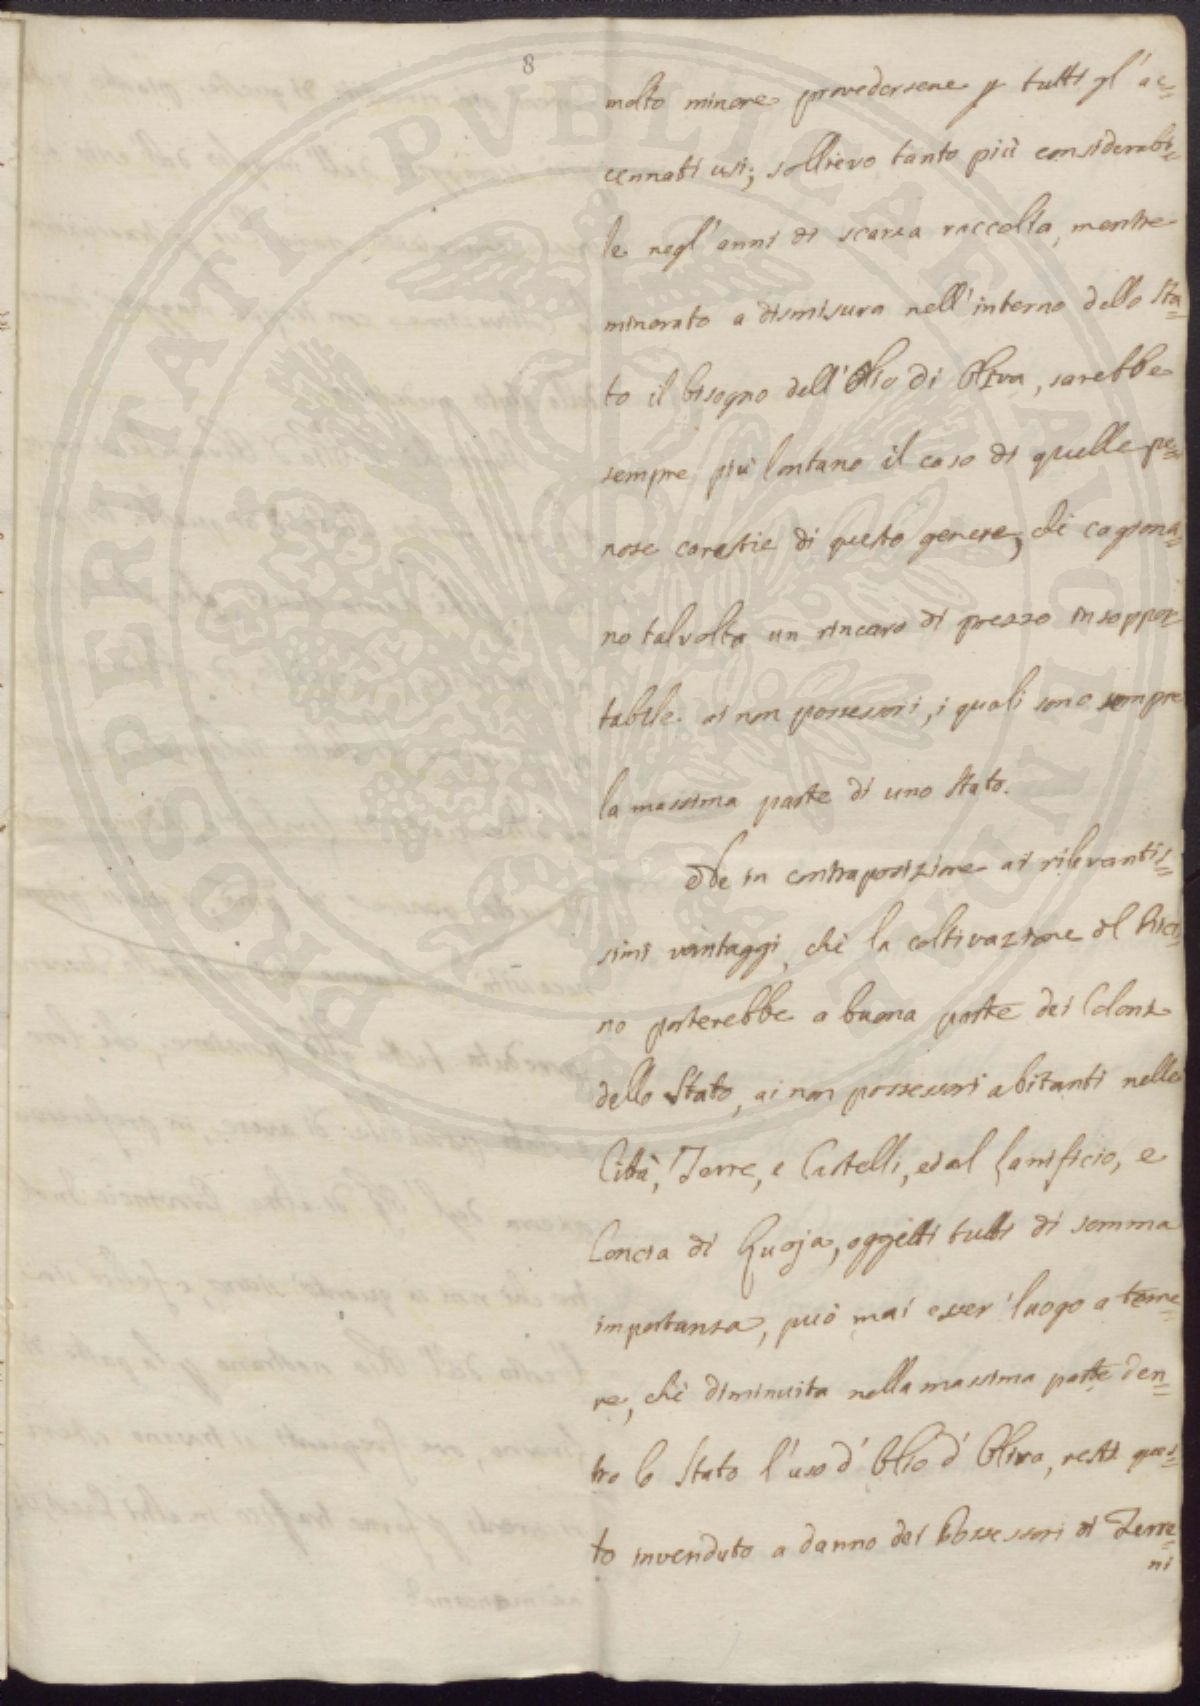 8
molto minore provedersene p tutti gl'ac=
cennati usi; sollievo tanto più considerabi=
le negl'anni di scarsa raccolta, mentre
minorato a dismisura nell'interno dello Sta=
to il bisogno dell'Olio di Oliva, sarebbe
sempre più lontano il caso di quelle pe=
nose carestie di questo genere, che cagiona=
no talvolta un rincaro di prezzo insoppor=
tabile ai non possessori, i quali sono sempre
la massima parte di uno Stato.
Ne in contraposizione ai rilevantis=
simi vantaggi, che la coltivazione del Rici=
no porterebbe a buona parte dei Coloni
dello Stato, ai non possessori abitanti nelle
Città, Terre, e Castelli, ed al Lanificio, e
Concia di Quoja, oggetti tutti di somma
importanza, può mai esser' luogo a teme=
re, che diminuita nella massima parte den=
tro lo Stato l'uso d'Olio d'Oliva, resti ques=
to invenduto a danno dei Possessori di Terre=
ni
PROSPERITATI PVBLICAE AVGENDAE